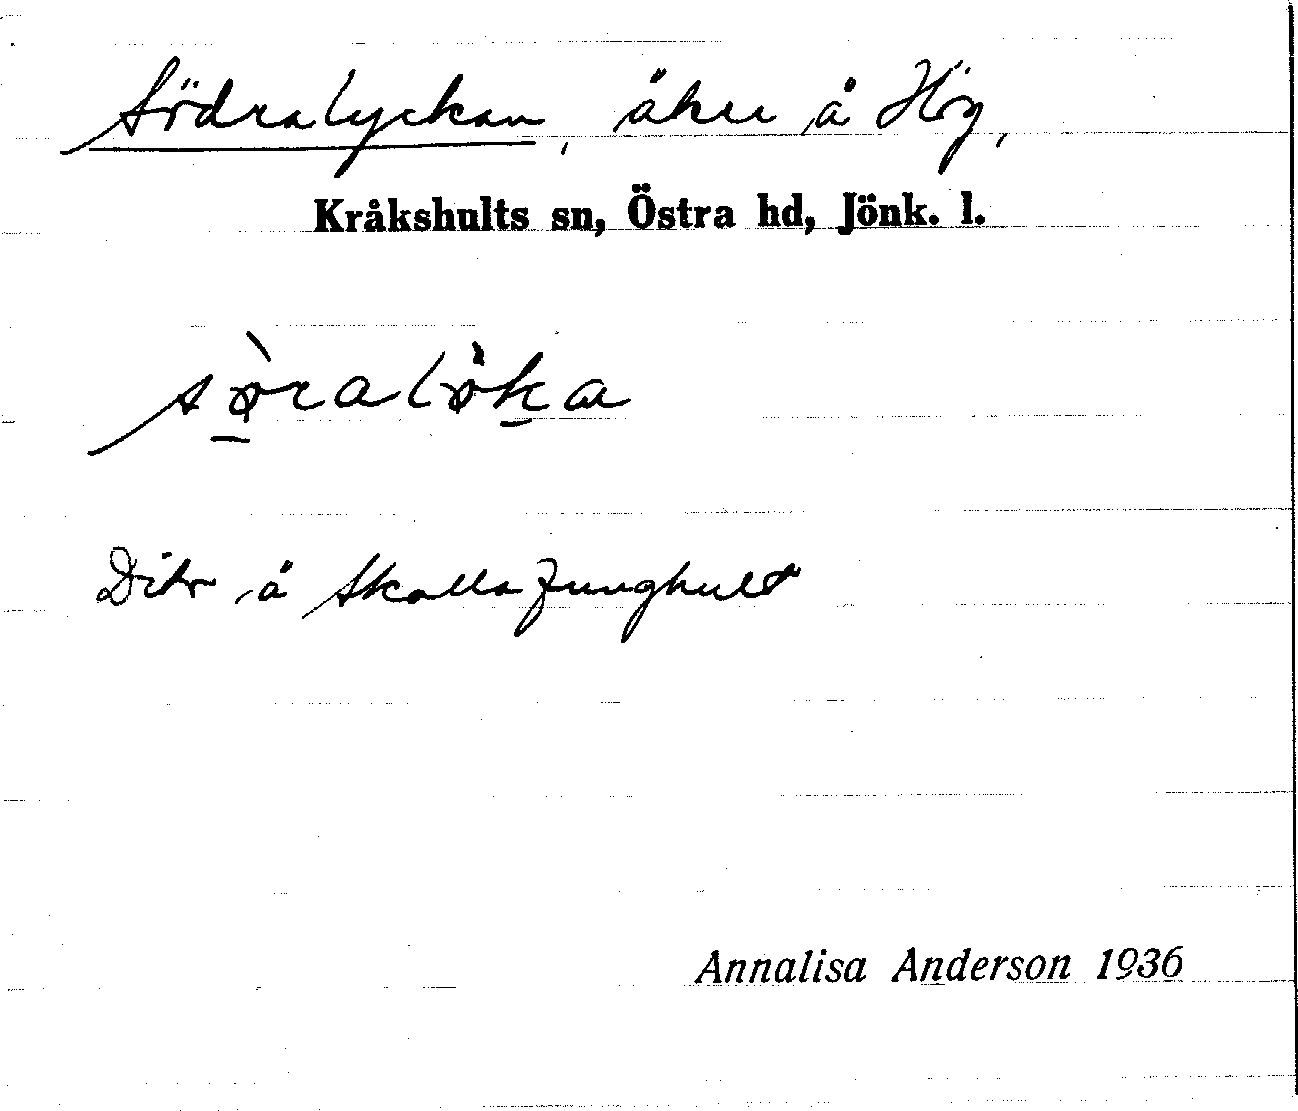 Södralyckan, åker å Hög,
Kråkshults sn, Östra hd, Jönk. l.
sø̀ralø̀ka
Dito å Skallafunghult
Annalisa Anderson 1936